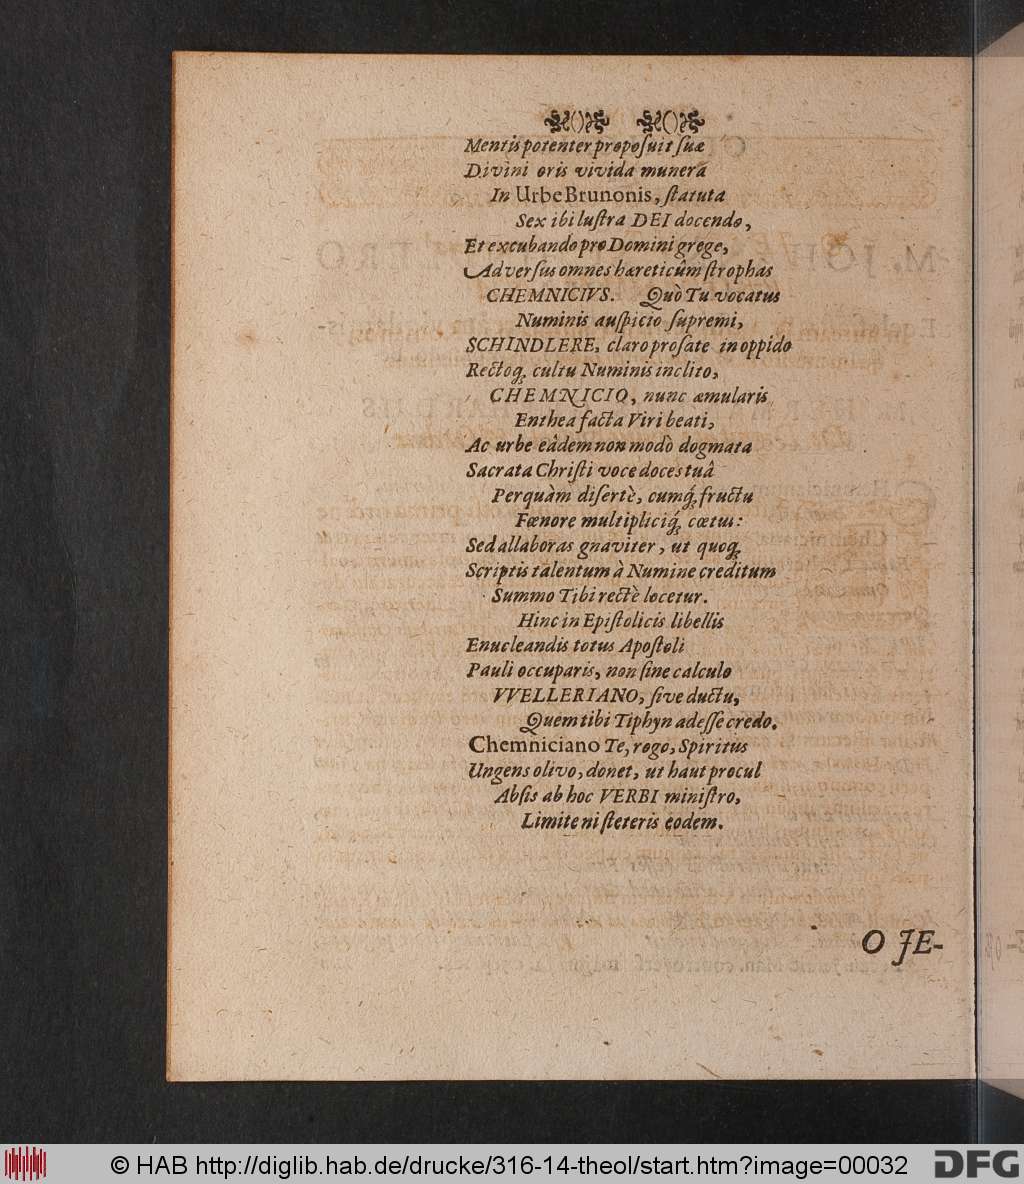 Mentis potenter proposuit suæ
Divini oris vivida munera
In Urbe Brunonis, statuta
Sex ibi lustra DEI docendo,
Et excubando pro Domini grege,
Adversus omnes hæreticûm strophas
CHEMNICIVS. Quò Tu vocatus
Numinis auspicio supremi,
SCHINDLERE, claro prosate in oppido
Rectoq́; cultu Numinis inclito,
CHEMNICIO, nunc æmularis
Enthea facta Viri beati,
Ac urbe eâdem non modò dogmata
Sacrata Christi voce doces tuâ
Perquàm disertè, cumq́; fructu
Fœnore multipliciq́; cœtus:
Sed allaboras gnaviter, ut quoq;
Scriptis talentum à Numine creditum
Summo Tibi rectè locetur.
Hinc in Epistolicis libellis
Enucleandis totus Apostoli
Pauli occuparis, non sine calculo
VVELLERIANO, sive ductu,
Quem tibi Tiphyn adesse credo.
Chemniciano Te, rogo, Spiritus
Ungens olivo, donet, ut haut procul
Absis ab hoc VERBI ministro,
Limite ni steteris eodem.
O JE-
© HAB http://diglib.hab.de/drucke/316-14-theol/start.htm?image=00032 DFG